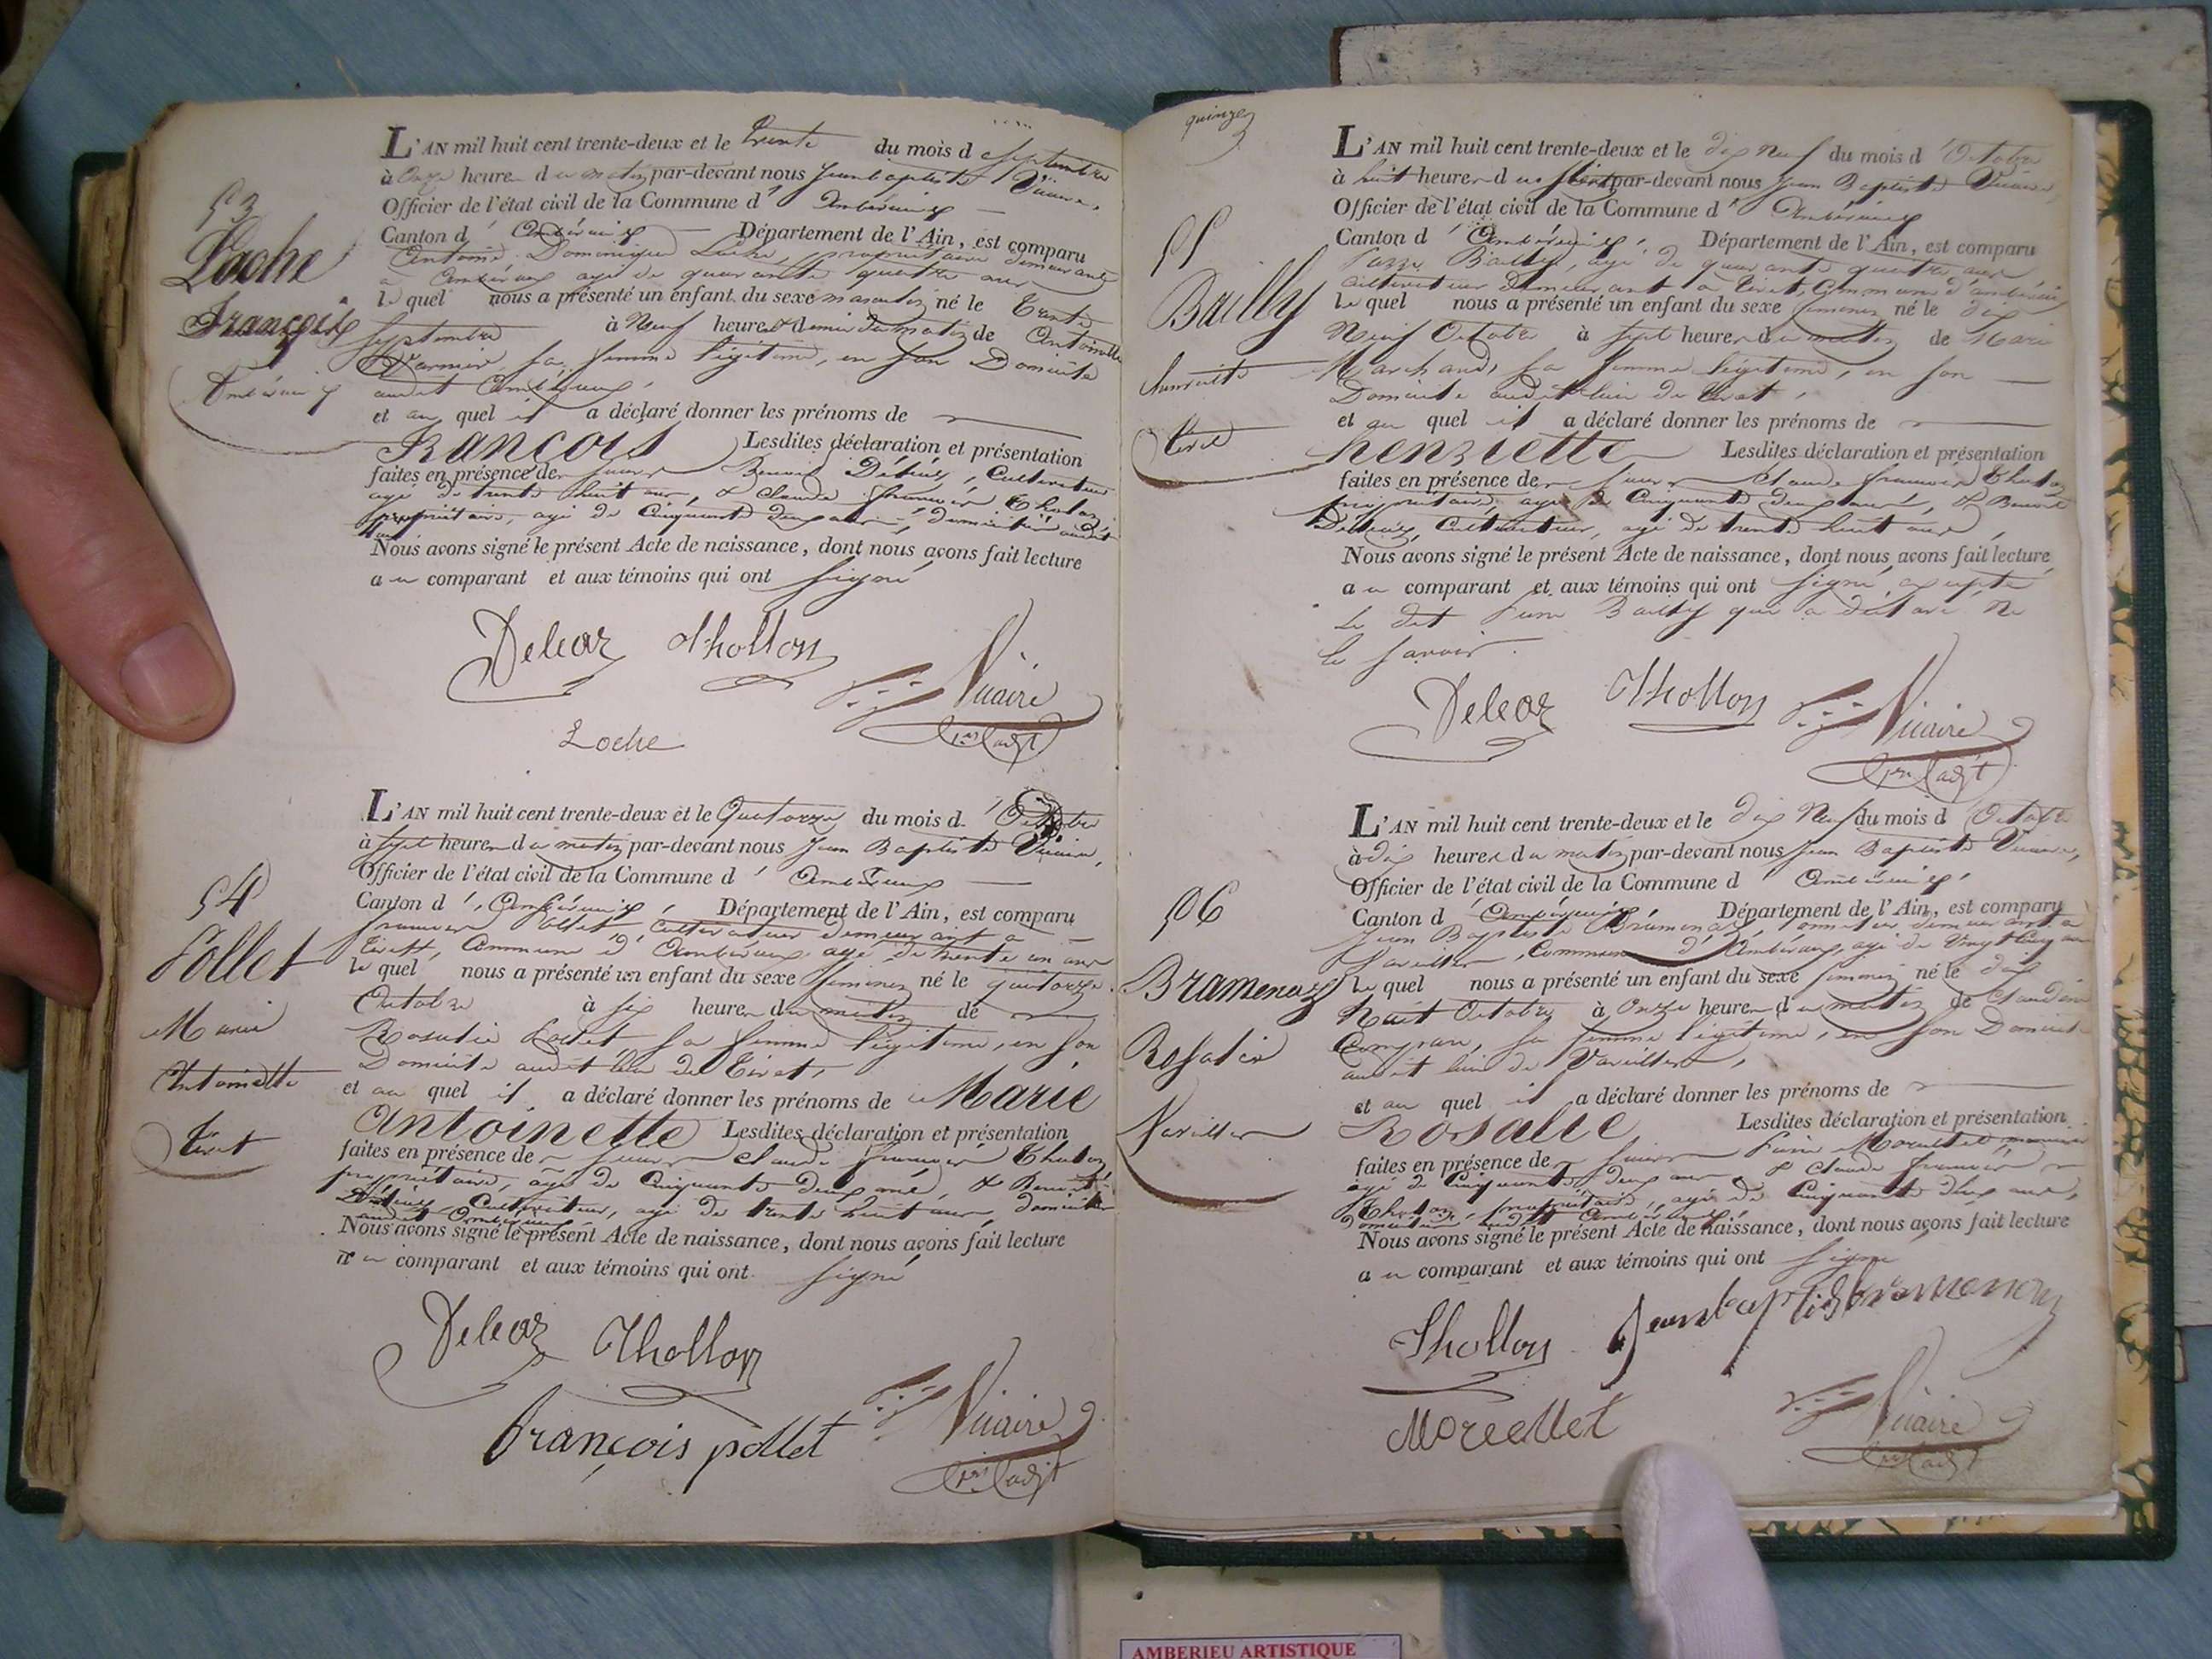 53
Loche
François
Ambérieux
L'AN mil huit cent trente-deux et le trente du mois d septembre
à onze heures du matin par-devant nous Jean baptiste Vicaire,
Officier de l'état civil de la Commune d' Ambérieux
Canton d' Ambérieux Département de l'Ain, est comparu
Antoine Dominique Loche, propriétaire demeurant
à Ambérieux agé de quarante quatre ans
le quel nous a présenté un enfant du sexe masculin né le trente
septembre à neuf heures & demie du matin de Antoinette
sa femme légitime, en son Domicile
audit Ambérieux,
et au quel il a déclaré donner les prénoms de
François Lesdites déclaration et présentation
faites en présence de sieurs Benoit Cultivateur
agé de trente huit ans, & Claude françois Thollon
propriétaire, agé de Cinquante deux ans, domiciliés audit
Nous avons signé le présent Acte de naissance, dont nous avons fait lecture
au comparant et aux témoins qui ont signé
Thollon
Vicaire
Loche
54
Pollet
Marie
Antoinette
Tiret
L'AN mil huit cent trente-deux et le Quatorze du mois d' Octobre
à sept heures du matin par-devant nous Jean Baptiste Vicaire,
Officier de l'état civil de la Commune d' Ambérieux
Canton d' Ambérieux, Département de l'Ain, est comparu
françois Pollet, Cultivateur demeurant à
Tiret, Commune d'Ambérieux agé de trente un ans
le quel nous a présenté un enfant du sexe féminin né le quatorze
Octobre à six heures du matin de
Rosalie sa femme légitime, en son
Domicile audit lieu de Tiret,
et au quel il a déclaré donner les prénoms de Marie
Antoinette Lesdites déclaration et présentation
faites en présence de sieurs Claude françois Thollon
propriétaire, agé de Cinquante deux ans, & Benoit
Cultivateur, agé de trente huit ans, domiciliés
audit Ambérieux
Nous avons signé le présent Acte de naissance, dont nous avons fait lecture
au comparant et aux témoins qui ont signé
Thollon
françois pollet Vicaire
quinze
55
Bailly
henriette
Tiret
L'AN mil huit cent trente-deux et le dix neuf du mois d' Octobre
à huit heures du matin par-devant nous Jean Baptiste Vicaire,
Officier de l'état civil de la Commune d' Ambérieux
Canton d' Ambérieux, Département de l'Ain, est comparu
Bailly, agé de quarante quatre ans
cultivateur demeurant à Tiret, Commune d'ambérieux
le quel nous a présenté un enfant du sexe féminin né le dix
Neuf Octobre à sept heures du matin de Marie
Marchand, sa femme légitime, en son
Domicile audit lieu de Tiret,
et au quel il a déclaré donner les prénoms de
henriette Lesdites déclaration et présentation
faites en présence de sieurs Claude françois Thollon
propriétaire, agé de Cinquante deux ans, & Benoit
Cultivateur, agé de trente huit ans,
Nous avons signé le présent Acte de naissance, dont nous avons fait lecture
au comparant et aux témoins qui ont signé, excepté
le dit Bailly qui a déclaré ne
le savoir.
Thollon Vicaire
56
Bramenaz
Rosalie
Vareilles
L'AN mil huit cent trente-deux et le dix Neuf du mois d' Octobre
à dix heures du matin par-devant nous Jean Baptiste Vicaire,
Officier de l'état civil de la Commune d' Ambérieux
Canton d' Ambérieux, Département de l'Ain, est comparu
Jean Baptiste Bramenaz, demeurant à
Vareilles, Commune d'Ambérieux, agé de Vingt Cinq ans
le quel nous a présenté un enfant du sexe féminin né le dix
Huit Octobre à onze heures du matin de Claudine
sa femme légitime, en son Domicile
audit lieu de Vareilles,
et au quel il a déclaré donner les prénoms de
Rosalie Lesdites déclaration et présentation
faites en présence de sieurs
agé de Cinquante deux ans & Claude françois
Thollon, propriétaire, agé de Cinquante deux ans,
domiciliés audit Ambérieux
Nous avons signé le présent Acte de naissance, dont nous avons fait lecture
au comparant et aux témoins qui ont signé
Thollon
Morcellet Vicaire
AMBERIEU ARTISTIQUE